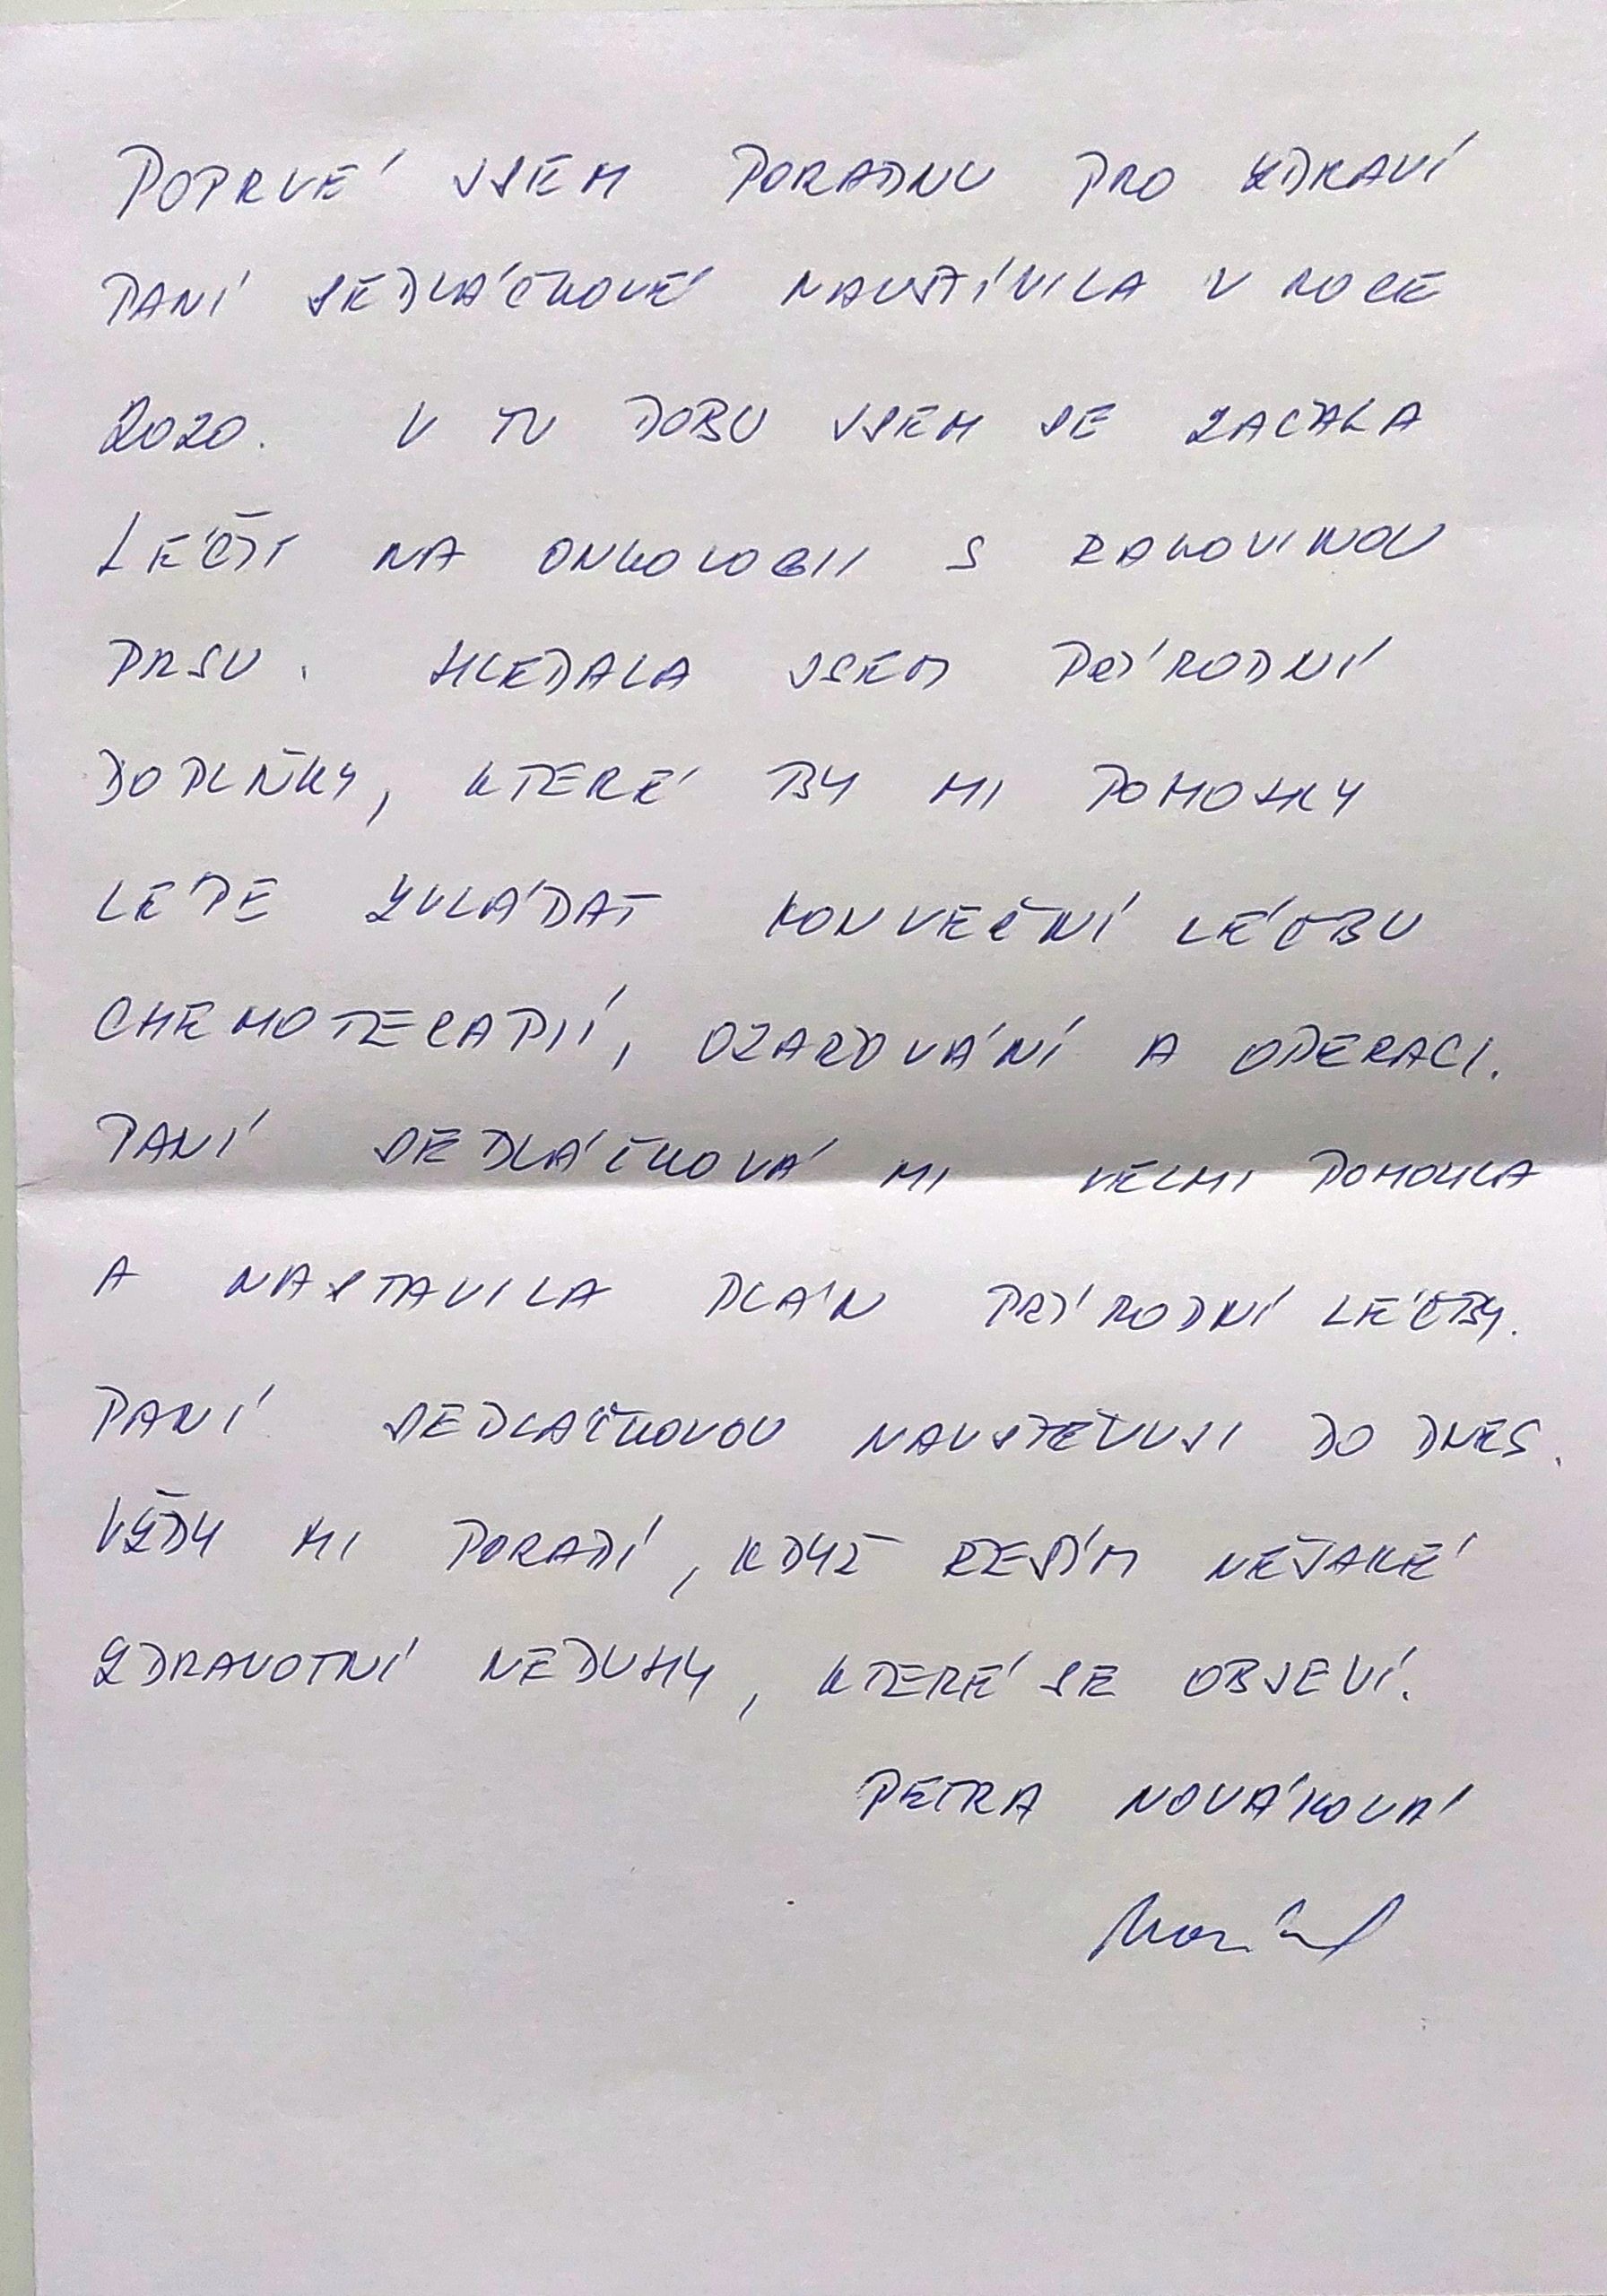 POPRVÉ JSEM PORADNU PRO ZDRAVÍ
PANÍ SEDLÁČKOVÉ NAVŠTÍVILA V ROCE
2020. V TU DOBU JSEM SE ZAČALA
LÉČIT NA ONKOLOGII S RAKOVINOU
PRSU. HLEDALA JSEM PŘÍRODNÍ
DOPLŇKY, KTERÉ BY MI POMOHLY
LÉPE ZVLÁDAT KONVEČNÍ LÉČBU
CHEMOTERAPIÍ, OZAŘOVÁNÍ A OPERACI.
PANÍ SEDLÁČKOVÁ MI VELMI POMOHLA
A NASTAVILA PLÁN PŘÍRODNÍ LÉČBY.
PANÍ SEDLAČKOVOU NAVŠTĚVUJI DO DNES.
VŽDY MI PORADÍ, KDYŽ ŘEŠÍM NĚJAKÉ
ZDRAVOTNÍ NEDUHY, KTERÉ SE OBJEVÍ.
PETRA NOVÁKOVÁ